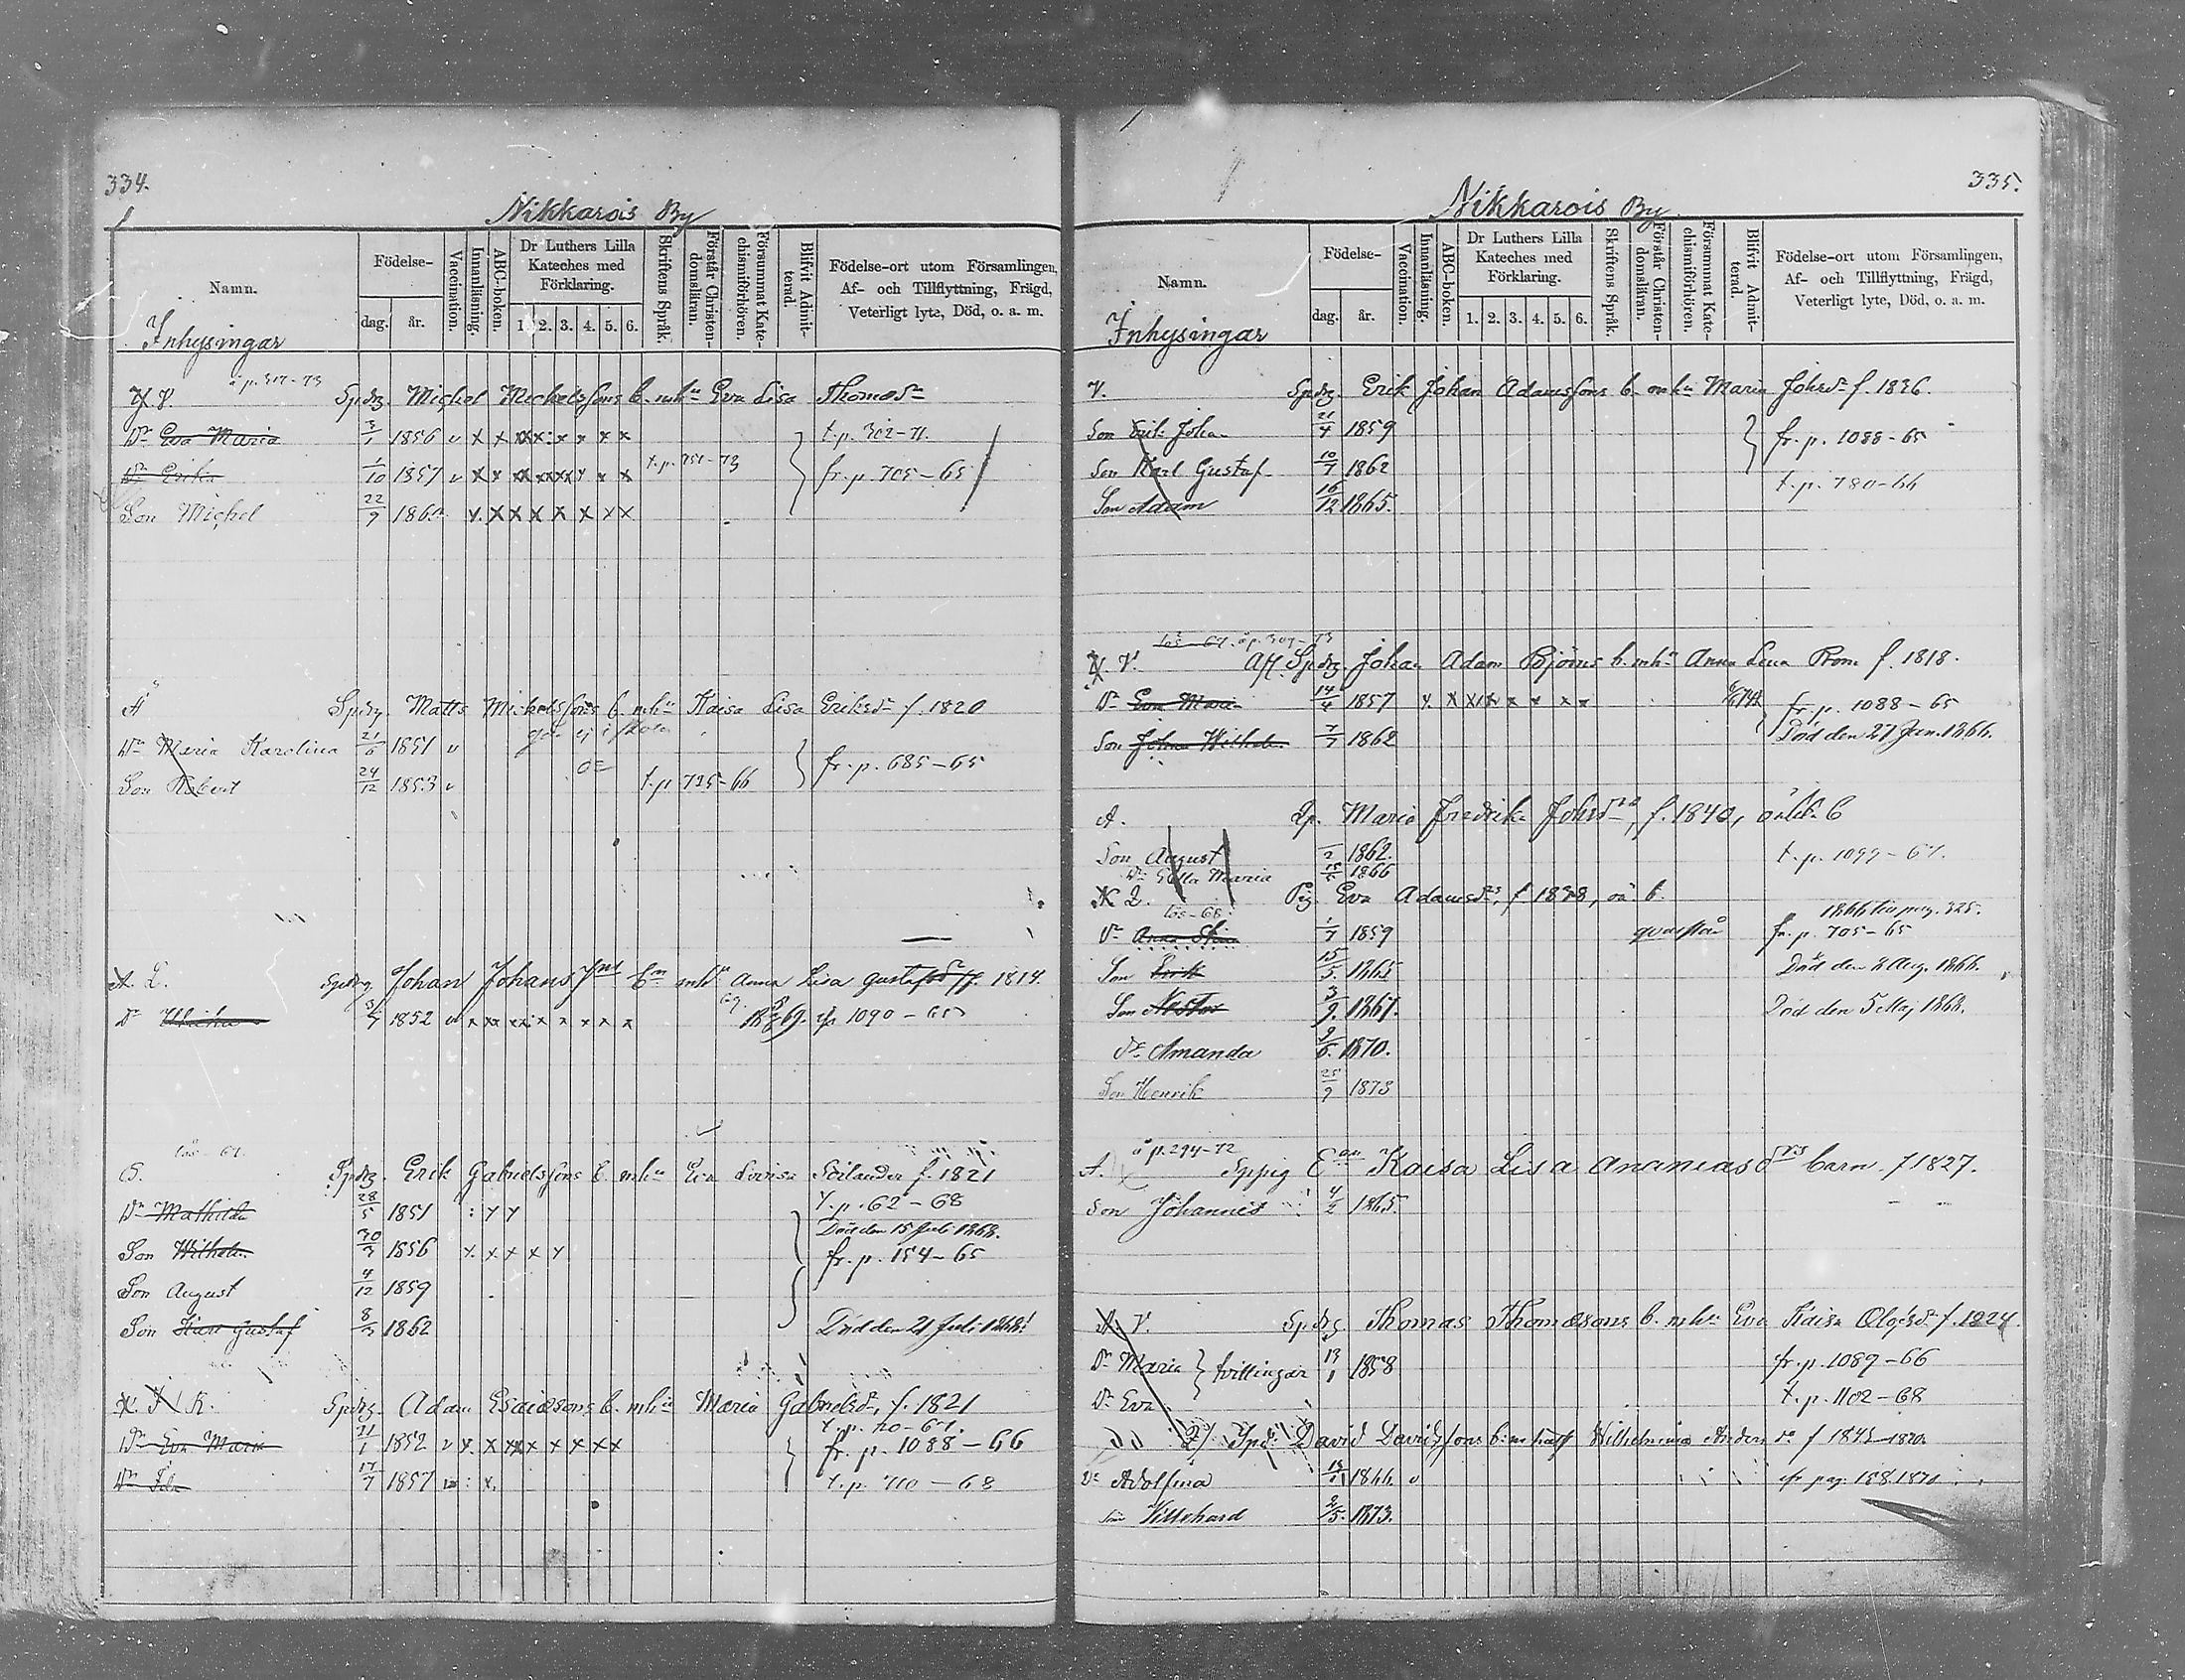 334.
Nikkarois By
Namn.
Födelse-
dag.
år.
Vaccination.
Innanläsning.
ABC-boken.
Dr Luthers Lilla Kateches med Förklaring.
1. 2. 3. 4. 5. 6.
Skriftens Språk.
Förstår Christendomsläran.
Försummat Katechismiförhören.
Blifvit Admitterad.
Födelse-ort utom Församlingen, Af- och Tillflyttning, Frägd, Veterligt lyte, Död, o. a. m.
Inhysingar
Spdrg. Michel Michelssons b. mhu Eva Lisa Thomasdr
Dr Eva Maria 3/1 1856 v x x xx x x x x t. p. 302-71.
Dr Erika 1/10 1857 v x x t. p. 751-73 fr. p. 705-65
Son Michel 22/9 186 x x x x x x x x
Spdrg. Matts Michelssons b. mhu Kaisa Lisa Eriksdr f. 1820
Dr Maria Karolina 21/6 1851 v
Son Robert 24/12 1853 v t. p. 725-66 fr. p. 685-65
A. L. Spdrg. Johan Johanss Jns bn mhu Anna Lisa Gustafsdr f. 1814.
Dr Ulrika 3/7 1852 v 1869. 1090-65
lös-67.
G. Spdrg. Erik Gabrielssons b. mhu Eva Lovisa f. 1821
Dr Mathilda 28/5 1851 t. p. 62-68
Död den 15 Juli 1868.
Son Wilhelm 30/3 1856 x x x x fr. p. 154-65
Son August 4/12 1859
Son Karl Gustaf 8/3 1862 Död den 21 Juli 1868.
K. Spdrg. Adam Esaiæsons b. mhu Maria Gabrielsdr, f. 1821
Dr Eva Maria 21/1 1852 v x. x xx x x x x x fr. p. 1088-66
Dr Ida 17/7 1857 t. p. 710-68
335.
Nikkarois By
Namn.
Födelse-
dag.
år.
Vaccination.
Innanläsning.
ABC-boken.
Dr Luthers Lilla Kateches med Förklaring.
1. 2. 3. 4. 5. 6.
Skriftens Språk.
Förstår Christendomsläran.
Försummat Katechismiförhören.
Blifvit Admitterad.
Födelse-ort utom Församlingen, Af- och Tillflyttning, Frägd, Veterligt lyte, Död, o. a. m.
Inhysingar
V. Spdrg. Erik Johan Adamssons b. mhu Maria Johsdr f. 1836.
Son Erik Johan 21/4 1859 fr. p. 1088-65
Son Karl Gustaf 10/7 1862
t. p. 780-66
Son Adam 16/12 1865.
lös-67. å p. 309-73
V. Aft. Spdrg. Johan Adam Björns b. mhu Anna Lena Brom f. 1818.
Dr Eva Maria 14/4 1857 fr. p. 1088-65
Son Johan Wilhelm 7/7 1862 Död den 27 Jan. 1866.
A. Qp. Maria Fredrika Johsdr, f. 1840,
Son August 1862. t. p. 1099-67.
Dr Edla Maria 1866
Pig. Eva Adamsdrs, f. 1838, oä. b.
lös-68.
1866 tia pag. 325.
Dr Anna Stina 1/7 1859 fr. p. 705-65
Son Erik 15/5. 1865 Död den 8 Aug. 1866.
Son Nestor 3/9. 1867. Död den 5 Maj 1868.
Dr Amanda 1870.
Son Henrik 25/9 1873
å p. 294-72
A. Sppig Enan Kaisa Lisa Ananiasdrs barn f 1827.
Son Johannes 4/2 1865.
V. Spdrg. Thomas Thomæsons b. mhu Eva Kaisa Olofsdr f. 1824.
Dr Maria tvillingar 13/1 1858 fr. p. 1089-66
Dr Eva t. p. 1102-68
David Davidssons b. m Wilhelmina Anders dr f 1845 1870.
Dr Adolfina 1866. v pag. 188. 1870
son Willehard 2/5. 1873.